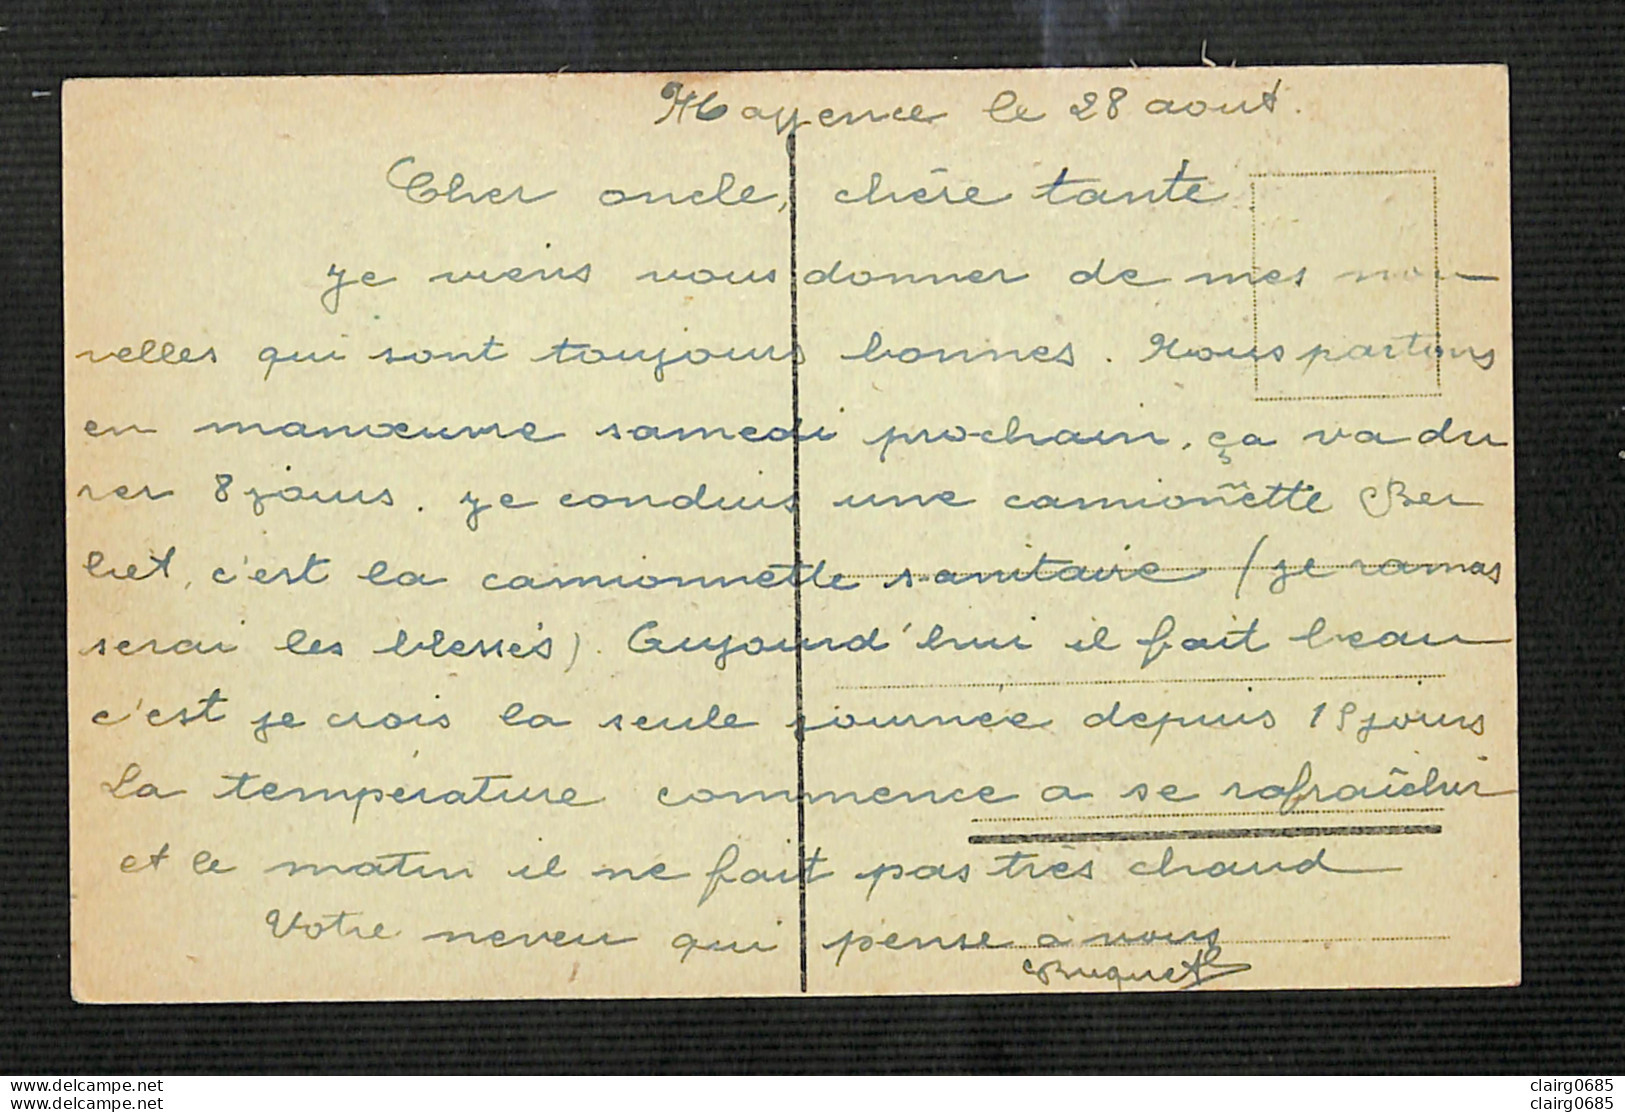 Mayence le 28 aout.
Cher oncle, chère tante
je viens vous donner de mes nou
velles qui sont toujours bonnes. Nous partons
en manœuvre samedi prochain, ça va du
rer 8 jours. je conduis une camionnette Ber
liet, c'est la camionnette sanitaire (je ramas
serai les blessés). Aujourd'hui il fait beau
c'est je crois la seule journée depuis 15 jours
La température commence a se rafraîchir
et le matin il ne fait pas très chaud
Votre neveu qui pense à vous
Buquet
delcampe.net
delcampe.net
clairg0685
clairg0685